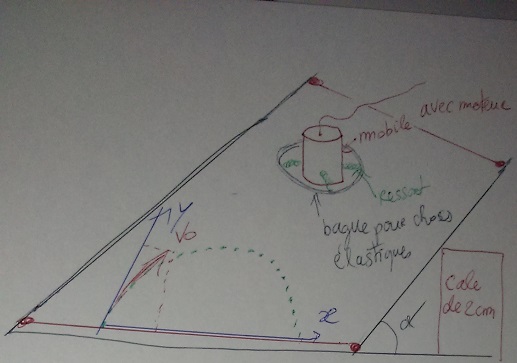 avec moteur
mobile
ressort
bague pour chocs
élastiques
y
V0
x
α
cale
de 2cm